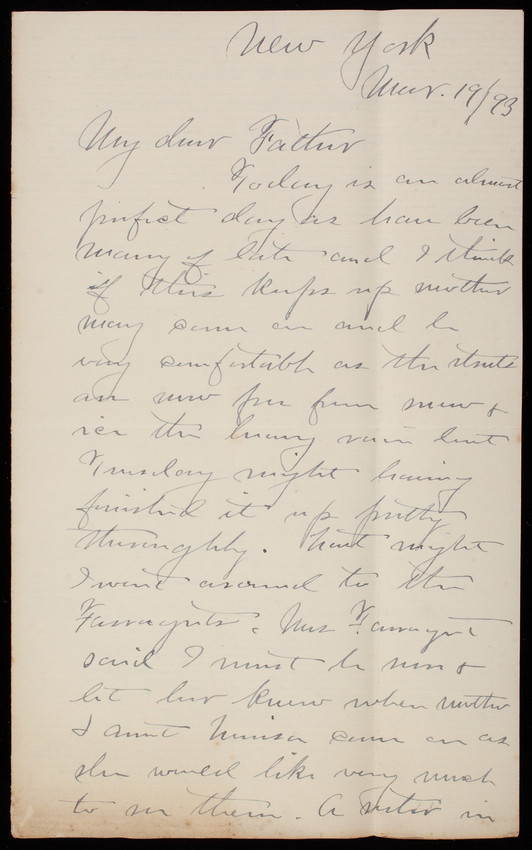 New York
Mar. 19/93
My dear Father
Today is an almost
perfect day as have been
many of late and I think
if this keeps up mother
may come on and be
very comfortable as the streets
are now free from snow &
ice the heavy rain last
Tuesday night having
finished it up pretty
thoroughly. Last night
I went around to the
Farraguts. Mrs Farragut
said I must be sure &
let her know when mother
& aunt come on as
she would like very much
to see them. A sister in